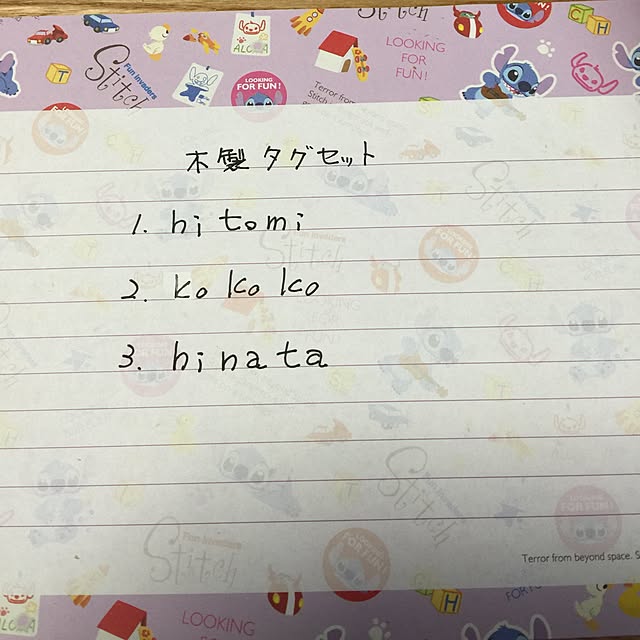 Stitch
Fun invaders
Stitch
ALOHA
LOOKING
FOR FUN!
LOOKING
FOR
FUN!
T
H
Terror from
木製タグセット
1. hitomi
2. kokoko
3. hinata
Fun invaders
Stitch
FOR FUN!
LOOKING
Fun invaders
Stitch
Fun invaders
Stitch
FOR FUN!
Terror from beyond space. S
LOOKING
FOR
H